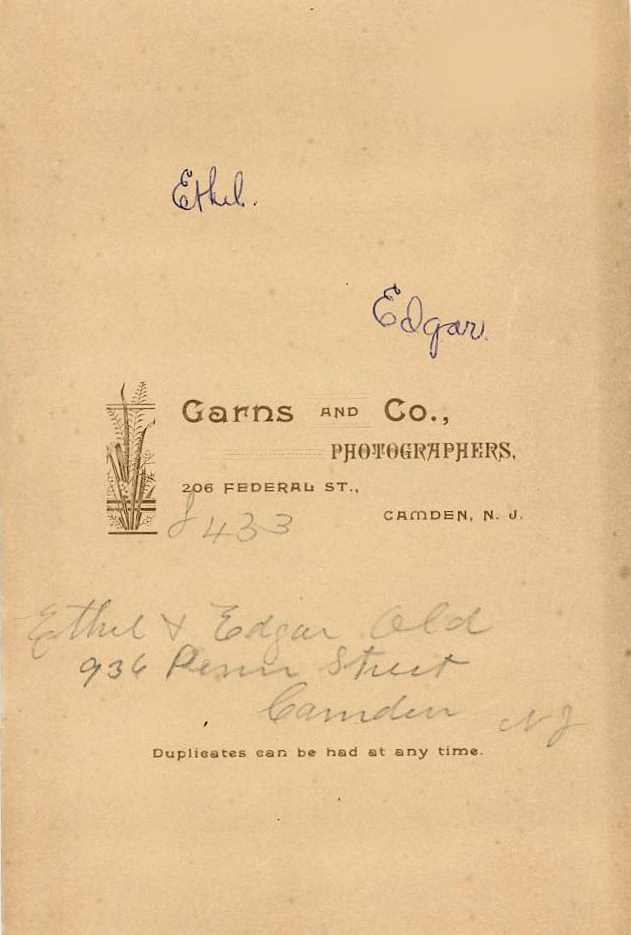 Ethel.
Edgar.
Garns AND Co.,
PHOTOGRAPHERS,
206 FEDERAL ST.,
CAMDEN, N. J.
J 433
Ethel & Edgar Old
936 Penn Street
Camden NJ
Duplicates can be had at any time.